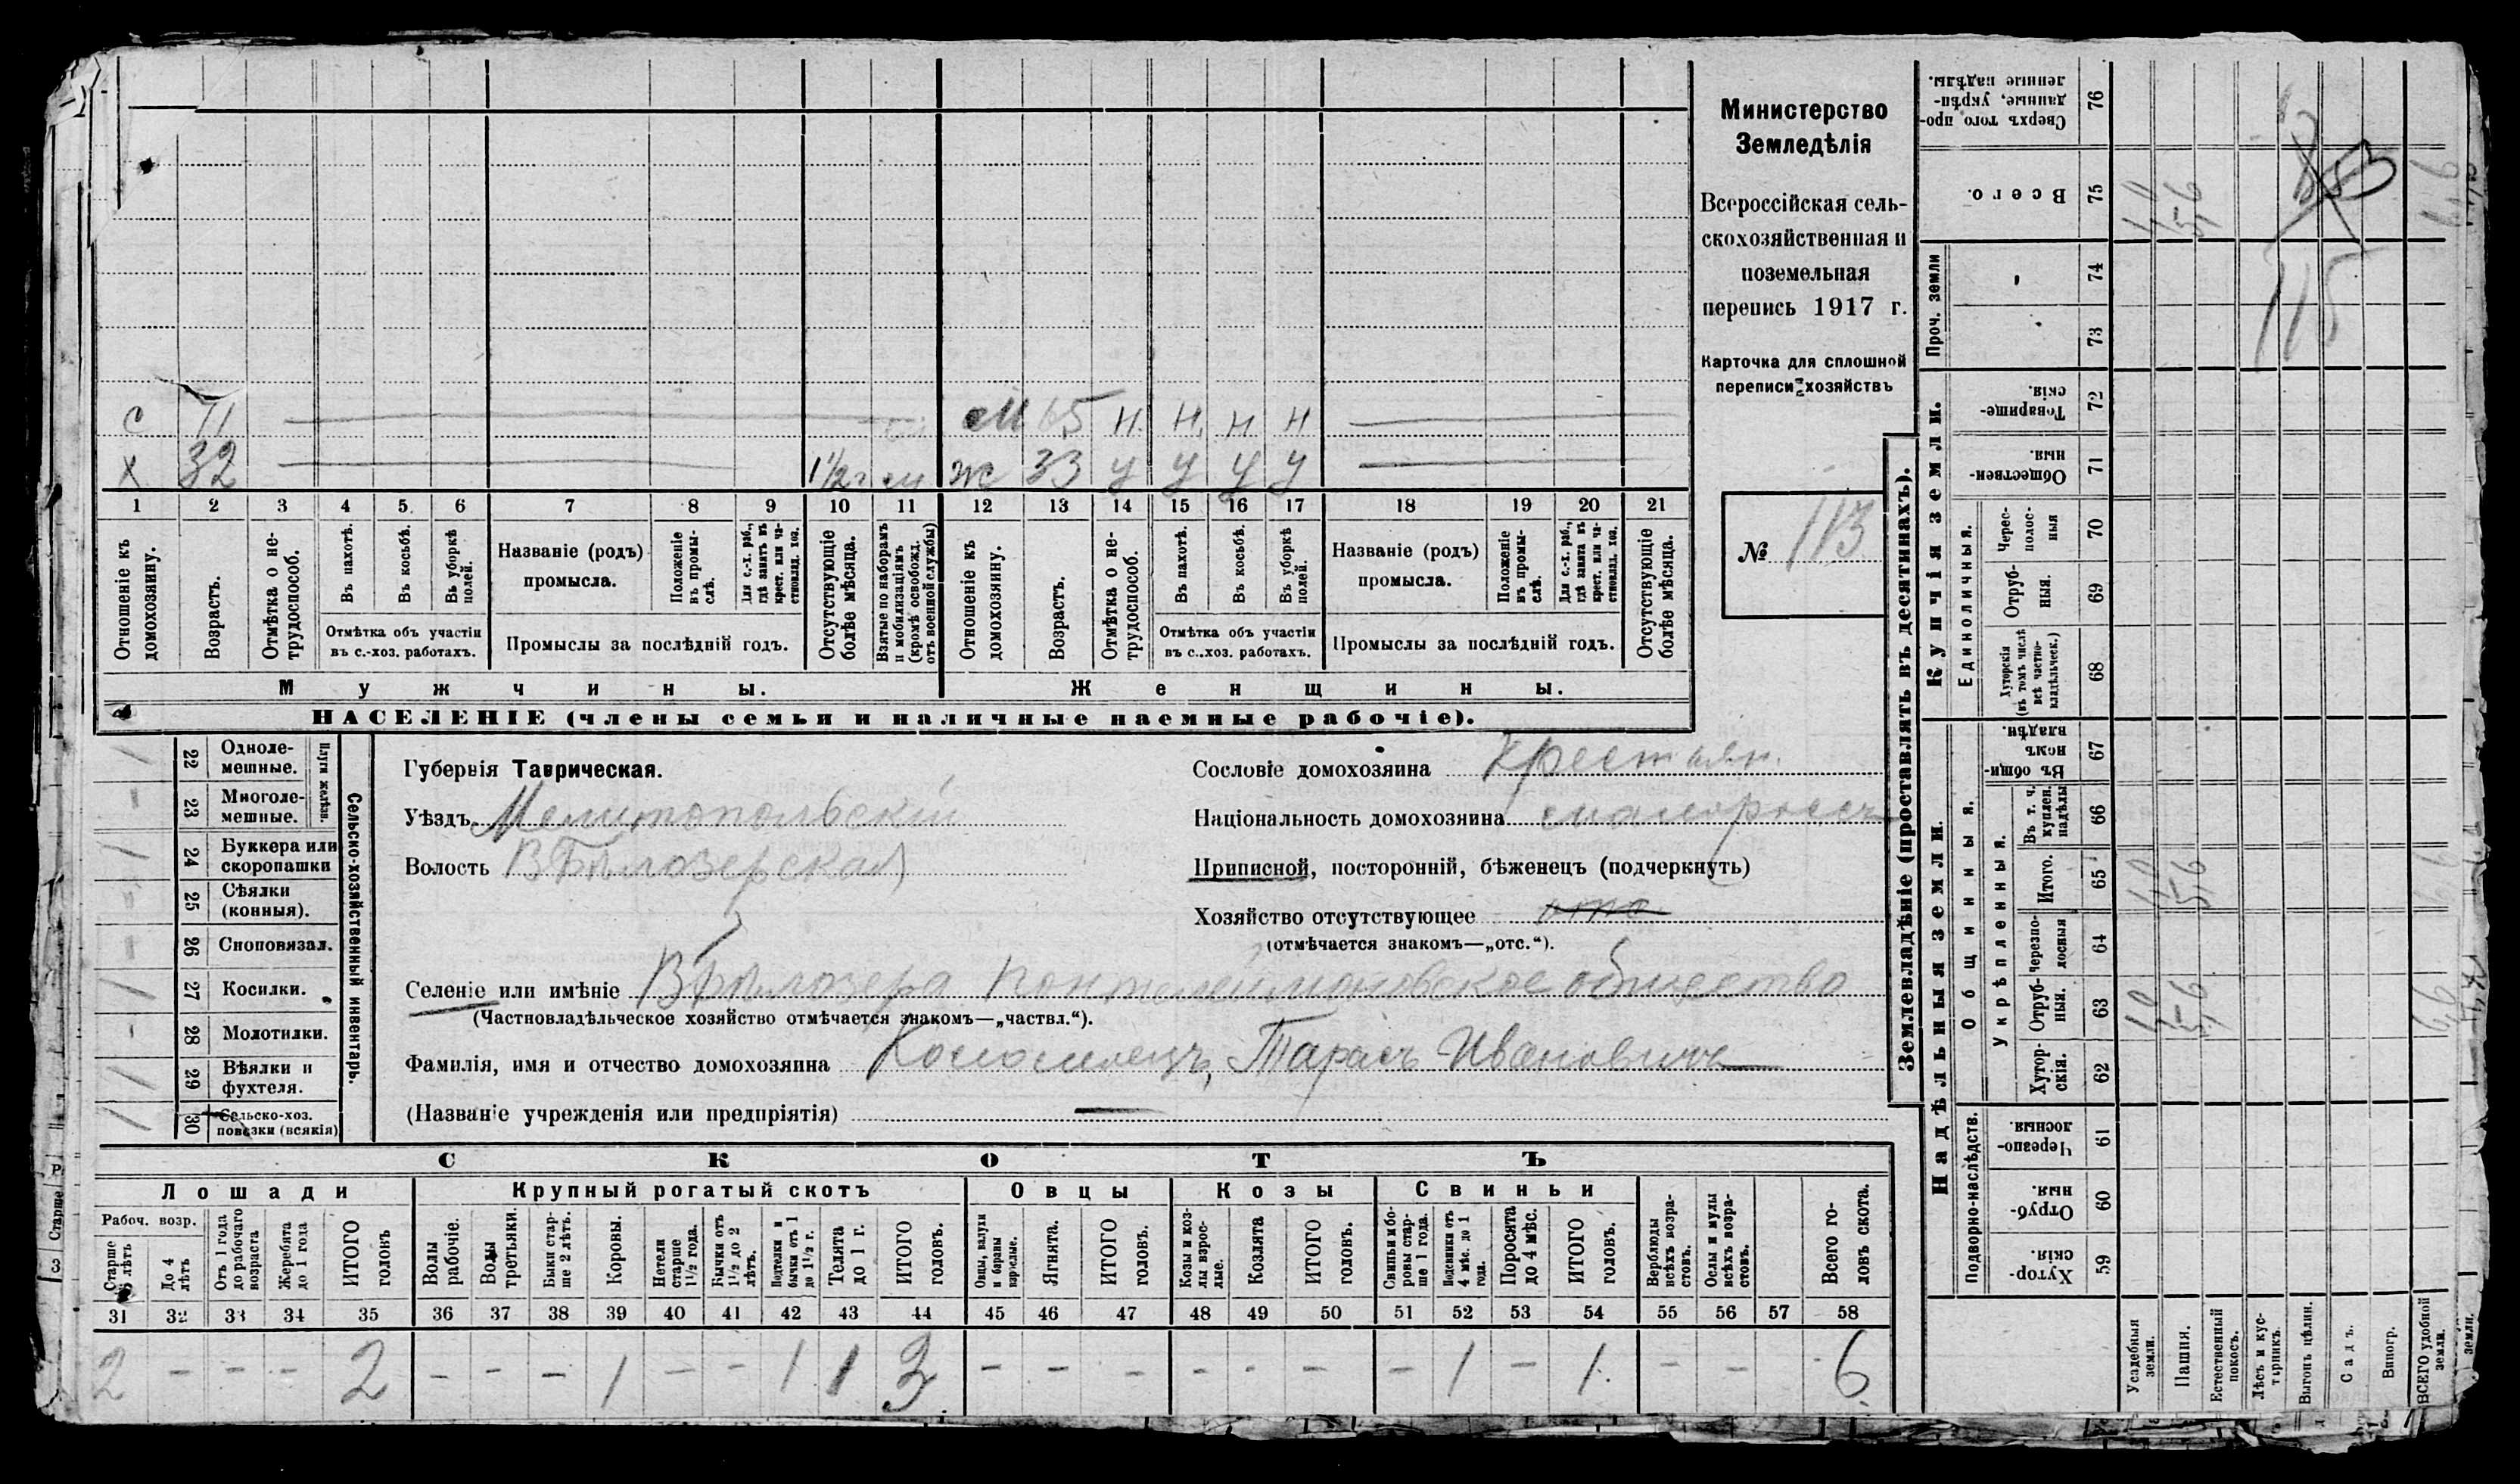 Министерство
Земледѣлія
Всероссійская сель-
скохозяйственная и
поземельная
перепись 1917 г.
Карточка для сплошной
переписи хозяйствъ
№ 113
С 11 М 65 Н. Н. Н Н
Х 32 1 1/2 г. м Ж 33 У У У У
1 2 3 4 5 6 7 8 9 10 11 12 13 14 15 16 17 18 19 20 21
Отношеніе къ домохозяину.
Возрастъ.
Отмѣтка о не-трудоспособ.
Въ пахотѣ.
Въ косьбѣ.
Въ уборкѣ полей.
Отмѣтка объ участіи въ с.-хоз. работахъ.
Названіе (родъ) промысла.
Положеніе въ промы-слѣ.
Для с.-х. раб., гдѣ занятъ въ крест. или ча-стновлад. хоз.
Промыслы за послѣдній годъ.
Отсутствующіе болѣе мѣсяца.
Взятые по наборамъ и мобилизаціямъ (кромѣ освобожд. отъ военной службы)
Отношеніе къ домохозяину.
Возрастъ.
Отмѣтка о не-трудоспособ.
Въ пахотѣ.
Въ косьбѣ.
Въ уборкѣ полей.
Отмѣтка объ участіи въ с..хоз. работахъ.
Названіе (родъ) промысла.
Положеніе въ промы-слѣ.
Для с.-х. раб., гдѣ занята въ крест. или ча-стновлад. хоз.
Промыслы за послѣдній годъ.
Отсутствующіе болѣе мѣсяца.
Мужчины. Женщины.
НАСЕЛЕНІЕ (члены семьи и наличные наемные рабочіе).
Сельско-хозяйственный инвентарь.
Плуги желѣзн.
1 22 Одноле-мешные.
– 23 Многоле-мешные.
1 24 Буккера или скоропашки
25 Сѣялки (конныя).
– 26 Сноповязал.
1 27 Косилки.
- 28 Молотилки.
1 29 Вѣялки и фухтеля.
1 30 Сельско-хоз. повозки (всякія)
Губернія Таврическая.
Уѣздъ Мелитопольскій
Волость В Бѣлозерская
Селеніе или имѣніе В Бѣлозерка Понтелеймоновское общество
(Частновладѣльческое хозяйство отмѣчается знакомъ—„частвл.“).
Фамилія, имя и отчество домохозяина Коломоецъ, Тарасъ Ивановичъ
(Названіе учрежденія или предпріятія) —
Сословіе домохозяина Крестьян.
Національность домохозяина малороссъ
Приписной, посторонній, бѣженецъ (подчеркнуть)
Хозяйство отсутствующее отс.
(отмѣчается знакомъ—„отс.“).
СКОТЪ
Лошади Крупный рогатый скотъ Овцы Козы Свиньи
Рабоч. возр.
Старше лѣтъ
До 4 лѣтъ
Отъ 1 года до рабочаго возраста
Жеребята до 1 года
ИТОГО головъ
Волы рабочіе.
Волы третьяки.
Быки стар-ше 2 лѣтъ.
Коровы.
Нетели старше 1 1/2 года.
Бычки отъ 1 1/2 до 2 лѣтъ.
Подтелки и бычки отъ 1 до 1 1/2 г.
Телята до 1 г.
ИТОГО головъ.
Овцы, валухи и бараны взрослые.
Ягнята.
ИТОГО головъ.
Козы и коз-лы взрос-лые.
Козлята
ИТОГО головъ.
Свиньи и бо-ровы стар-ше 1 года.
Подсвинки отъ 4 мѣс. до 1 года.
Поросята до 4 мѣс.
ИТОГО головъ.
Верблюды всѣхъ возра-стовъ.
Ослы и мулы всѣхъ возра-стовъ.
Всего го-ловъ скота.
31 32 33 34 35 36 37 38 39 40 41 42 43 44 45 46 47 48 49 50 51 52 53 54 55 56 57 58
2 – – – 2 – – – 1 – – 1 1 3 – – – – – – – 1 – 1 – – 6
Землевладѣніе (проставлять въ десятинахъ).
Надѣльныя земли.
Купчія земли.
Проч. земли
Подворно-наслѣдств.
Общинныя.
Укрѣпленныя.
Единоличныя.
59 Хутор-скія.
60 Отруб-ныя.
61 Черезпо-лосныя.
62 Хутор-скія.
63 Отруб-ныя.
64 Черезпо-лосныя
65 Итого.
66 Въ т. ч. куплен. надѣлы
67 Въ общи-номъ владѣн.
68 Хуторскія (въ томъ числѣ всѣ частно-владѣльческ.)
69 Отруб-ныя.
70 Черес-полос-ныя
71 Обществен-ныя.
72 Товарище-скія.
73
74
75 Всего.
76 Сверхъ того про-данные, укрѣп-ленные надѣлы.
Усадебныя земли.
Пашня.
Естественный покосъ.
Лѣсъ и кус-тарникъ.
Выгонъ цѣлин.
Садъ.
Виногр.
ВСЕГО удобной земли.
115